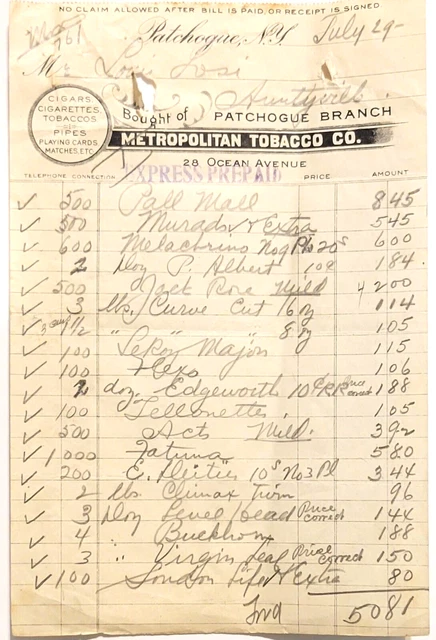 NO CLAIM ALLOWED AFTER BILL IS PAID, OR RECEIPT IS SIGNED.
Patchogue, N.Y. July 29-
761
M
CIGARS
CIGARETTES
TOBACCOS
PIPES
PLAYING CARDS
MATCHES, ETC.
Bought of PATCHOGUE BRANCH
METROPOLITAN TOBACCO CO.
28 OCEAN AVENUE
EXPRESS PREPAID
TELEPHONE CONNECTION PRICE AMOUNT
500 Pall Mall 845
500 Murads Extra 545
600 Melachrino No9 Pl 20s 600
2 Doz P. Albert 10¢ 184
500 Jack Rose Mild 4200
3 lbs. Curve Cut 16 oz 114
1 1/2 " " 8 oz 105
100 LeRoy Major 115
100 106
2 doz. Edgeworth 10¢ Price correct 188
100 105
500 Acts Mild. 392
1000 Fatima 580
200 E. Dieties 10s No3 Pl 344
2 lbs. Climax 96
3 Doz Level Head Price correct 144
4 " Buckhorn 188
3 " Virgin Leaf Price Correct 150
100 London Life Extra 80
Fwd 5081